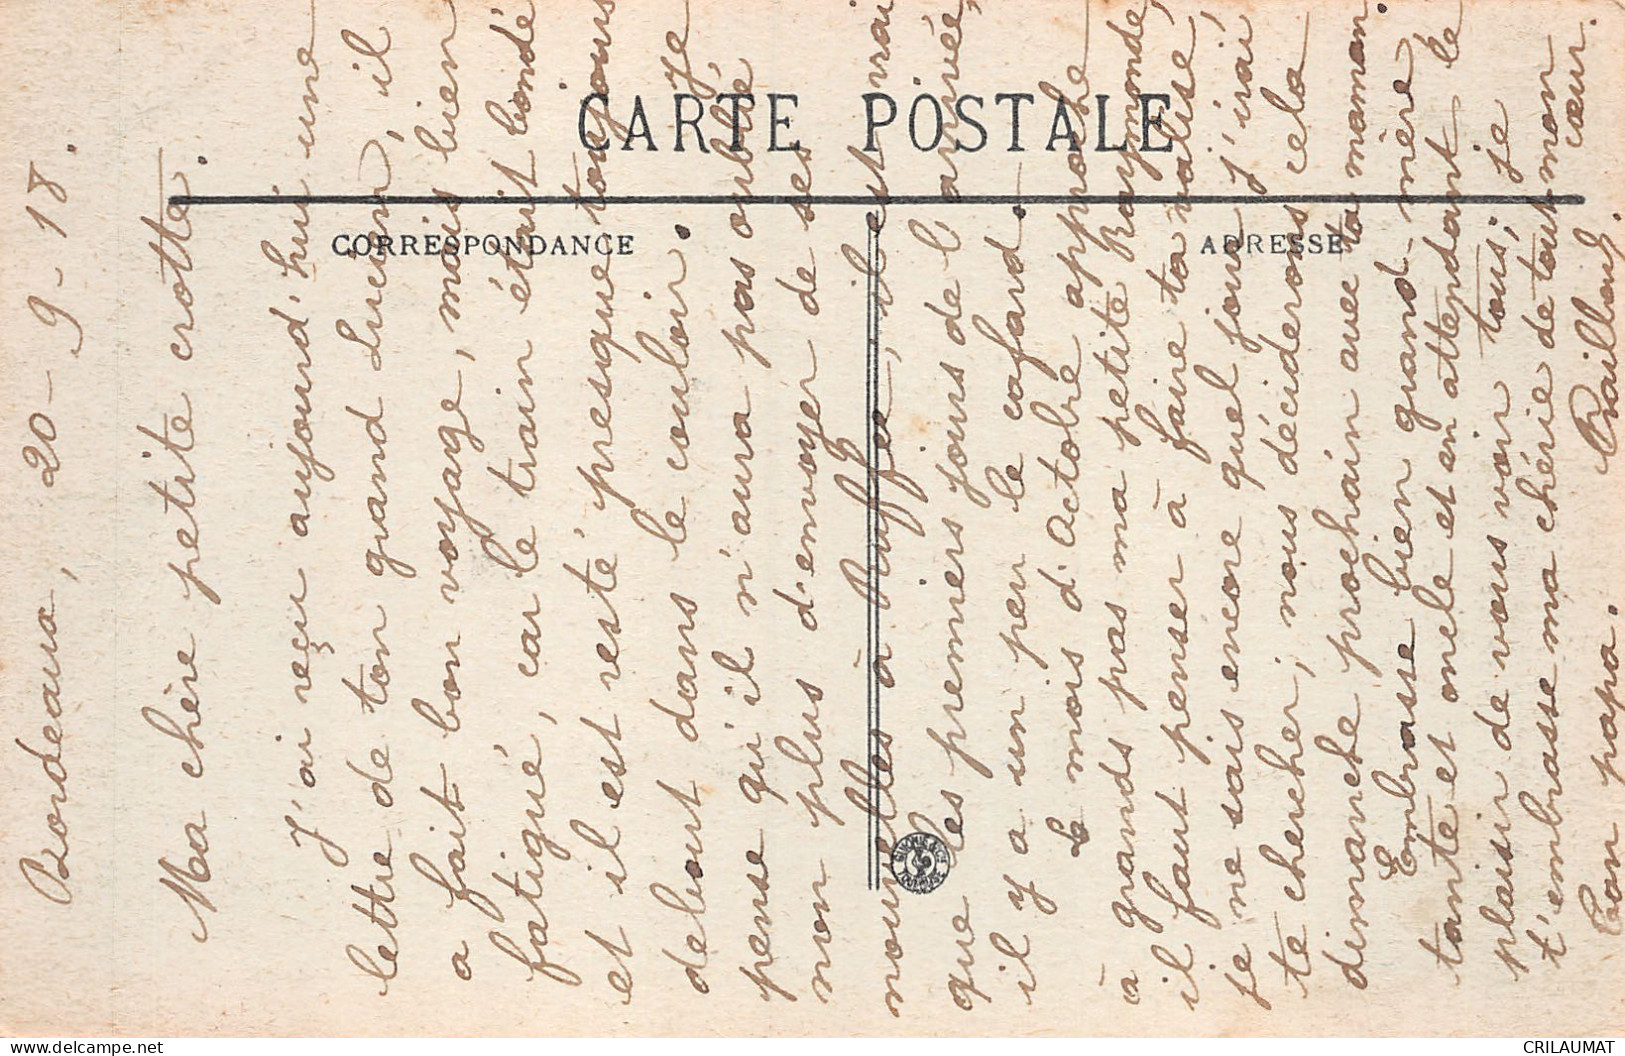 CARTE POSTALE
CORRESPONDANCE
ADRESSE
Bordeaux, 20-9-18.
Ma chère petite crotte.
J'ai reçu aujourd'hui une
lettre de ton grand Lucien, il
a fait bon voyage, mais bien
fatigué, car le train était bondé
et il est resté presque toujours
debout dans le couloir. Je
pense qu'il n'aura pas oublié
non plus d'envoyer de ses
nouvelles à Ruffec, il est vrai
que les premiers jours de l'arrivée,
il y a un peu le cafard.
Le mois d'Octobre approche
à grands pas ma petite Raymonde,
il faut penser à faire ta valise,
je ne sais encore quel jour j'irai
te chercher, nous déciderons cela
dimanche prochain avec ta maman.
Embrasse bien grand-mère
tante et oncle et en attendant le
plaisir de vous voir tous, je
t'embrasse ma chérie de tout mon
cœur.
Ton papa.
CRILAUMAT